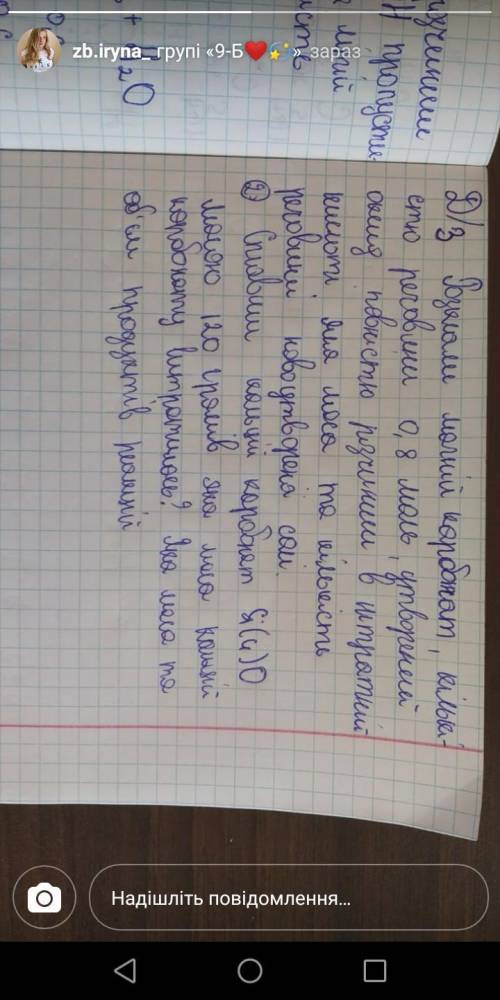 zb.iryna_ групі «9-Б❤️💫» зараз
розчинили
пропусти
магній
+ H₂O
Д/З Розклали магній карбонат, кількі-
стю речовини 0,8 моль, утворений
оксид повністю розчинили в нітратній
кислоті яка маса та кількість
речовини новоутворена солі.
② Сплавили кальцій карбонат Si(IV)O
масою 120 грамів яка маса кальцій
карбонату витратилась? Яка маса та
об'єм продуктів реакції
Надішліть повідомлення...